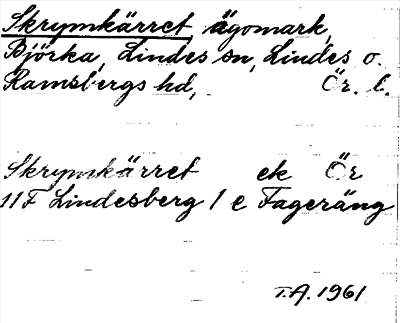 Skrymkärret ägomark,
Björka, Lindes sn, Lindes o.
Ramsbergs hd, Ör. l.
Skrymkärret ek Ör
11F Lindesberg 1 e Fageräng
T.A. 1961